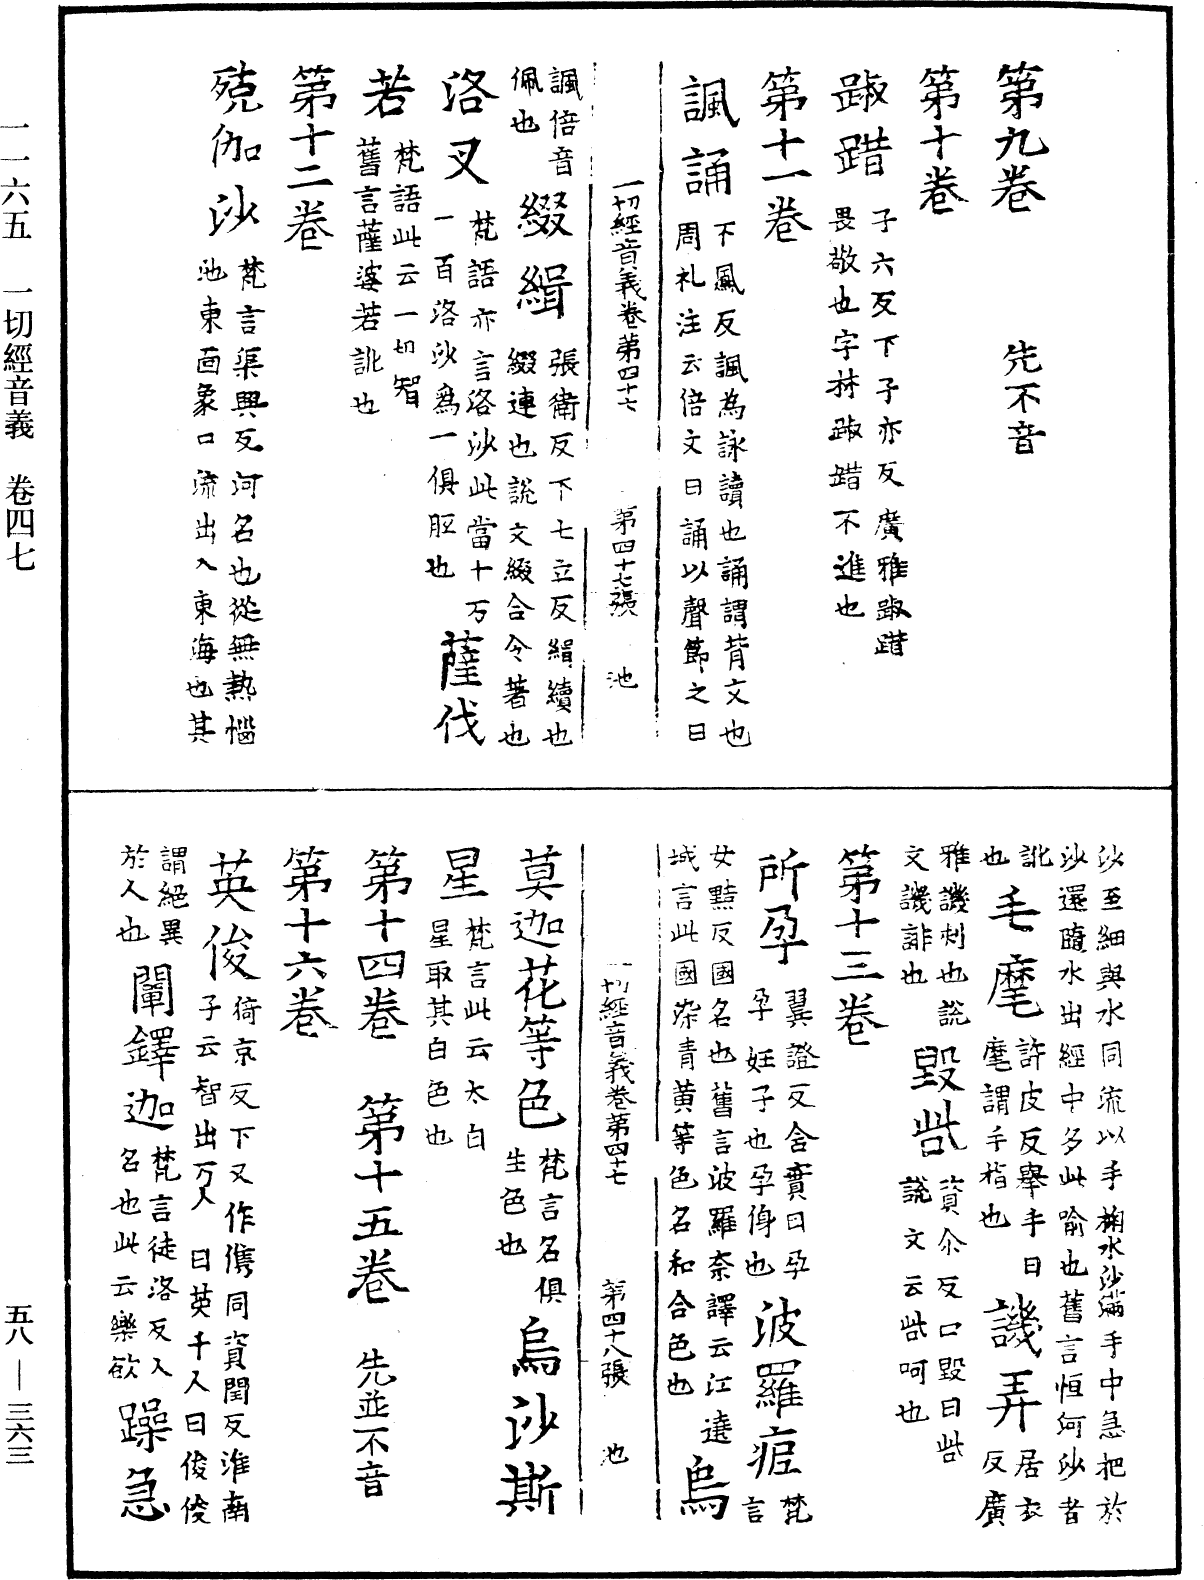 第九卷　　先不音
第十卷
踧踖 子六反下子亦反廣雅踧踖
畏敬也字林踧踖不進也
第十一卷
諷誦 不鳳反諷為詠讀也誦謂背文也
周礼注云倍文曰諷以聲節之曰
一切經音義卷第四十七　第四十七張　池
諷倍音
佩也 綴緝 張衛反下七立反緝續也
綴連也說文綴合令著也
洛叉 梵語亦言洛沙此當十万
一百洛沙為一俱胝也 薩伐
若 梵語此云一切智
舊言薩婆若訛也
第十二卷
殑伽沙 梵言渠興反河名也從無熱惱
池東面象口流出入東海也其
沙至細與水同流以手掬水沙滿手中急把於
沙還隨水出經中多此喻也舊言恒河沙者
訛
也 毛麾 許皮反舉手曰
麾謂手指也 譏弄 居衣
反廣
雅譏刺也說
文譏誹也 毀呰 資尒反口毀曰呰
說文云呰呵也
第十三卷
所孕 翼證反含實曰孕
孕妊子也孕傳也 波羅痆 梵
言
女黠反國名也舊言波羅奈譯云江遶
城言此國染青黄等色名和合色也 烏
一切經音義卷第四十七　第四十八張　池
莫迦花等色 梵言名俱
生色也 烏沙斯
星 梵言此云太白
星取其白色也
第十四卷　第十五卷　先並不音
第十六卷
英俊 猗京反下又作儁同資閏反淮南
子云智出万人曰英千人曰俊俊
謂絕異
於人也 闡鐸迦 梵言徒洛反人
名也此云樂欲 躁急
一一六五　一切經音義　卷四七
五八—三六三